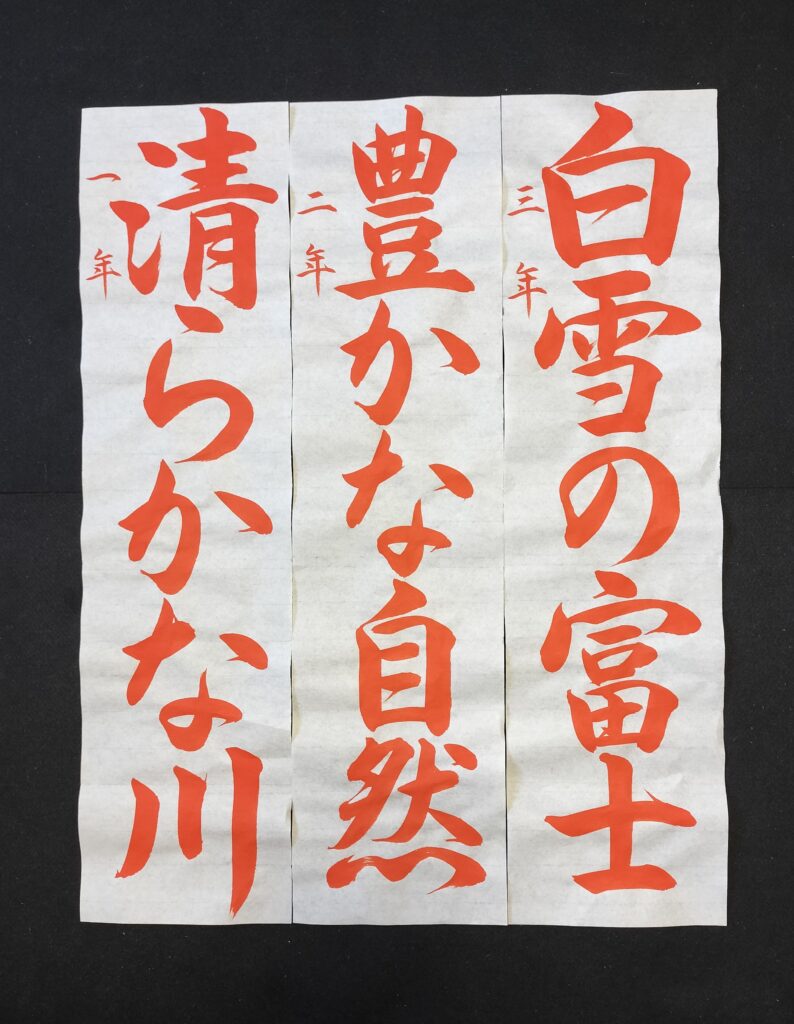 白雪の富士
三年
豊かな自然
二年
清らかな川
一年